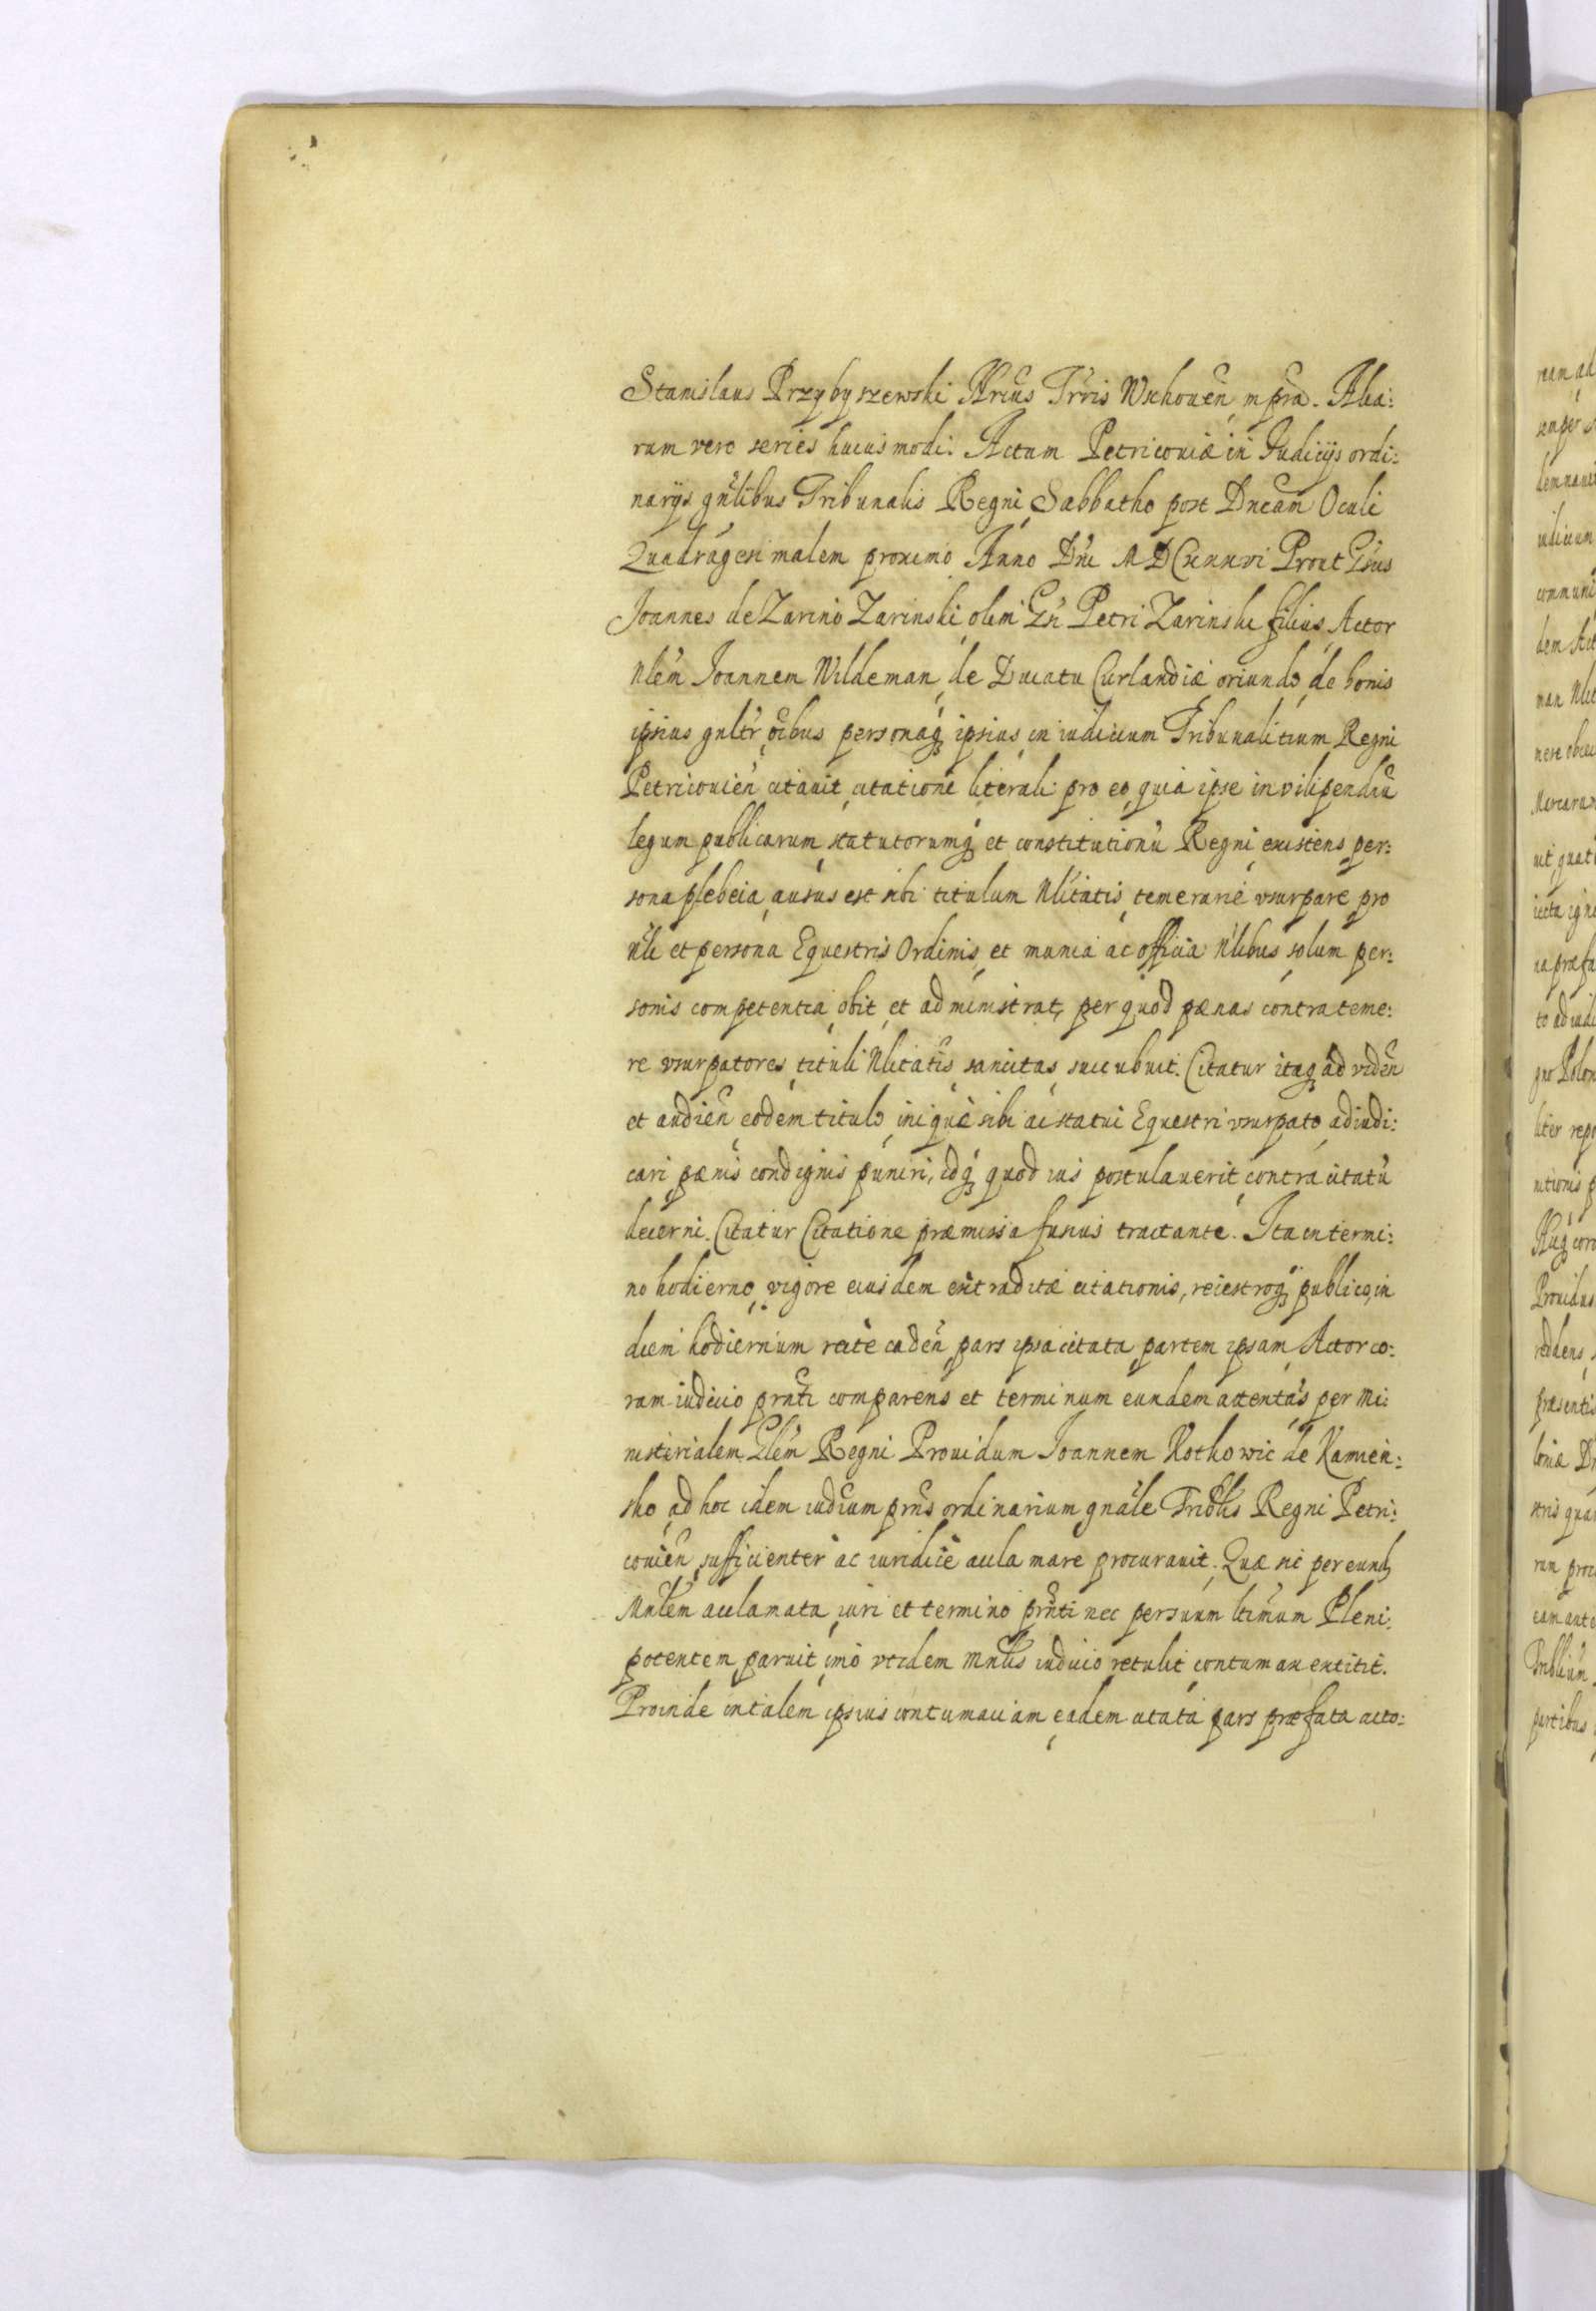 Stanislaus Przybyszewski Nrius Trris Wschouen mpra. Alia:
rum vero series huiusmodi. Actum Petricouiæ in Iudicijs ordi:
narijs gnlibus Tribunalis Regni Sabbatho post Dncam Oculi
Quadragesimalem proximo Anno Dni MDCxxxvi Prout Gsus
Joannes de Zarino Zarinski olim Gsi Petri Zarinski filius Actor
Nlem Joannem Wildeman de Ducatu Curlandiæ oriundo de bonis
ipsius gnltr oibus personaq ipsius in iudicium Tribunalitium Regni
Petricouien citauit citatione literali: pro eo quia ipse in vilipendiu
legum publicarum statutorumq et constitutionu Regni existens per:
sona plebeia ausus est sibi titulum Nlitatis temerarie vsurpare pro
Nli et persona Equestris Ordinis et munia ac officia Nlibus solum per:
sonis competentia obit et administrat, per quod pænas contra teme:
re vsurpatores tituli Nlitatis sancitas succubuit. Citatur itaq ad viden
et audien eodem titulo inique sibi ac statui Equestri vsurpato adiudi:
cari pænis condignis puniri, idq quod ius postulauerit contra citatu
decerni. Citatur Citatione præmissa fusius tractante. Ita in termi:
no hodierno vigore eiusdem extraditæ citationis, reiestroq publico in
diem hodiernum recte caden pars ipsa citata partem ipsam Actor co:
ram iudicio prnti comparens et terminum eundem attentas per Mi:
nisterialem Glem Regni Prouidum Joannem Kotkowic de Kamien:
sko ad hoc idem iudicium prns ordinarium gnale Triblis Regni Petri:
couien sufficienter ac iuridice acclamare procurauit. Quæ sic per eund
Mnlem acclamata iuri et termino prnti nec per suum ltimum Pleni:
potentem paruit imo vtidem Mnlis iudicio retulit contumax extitit.
Proinde in talem ipsius contumaciam eadem citata pars præfata acto: